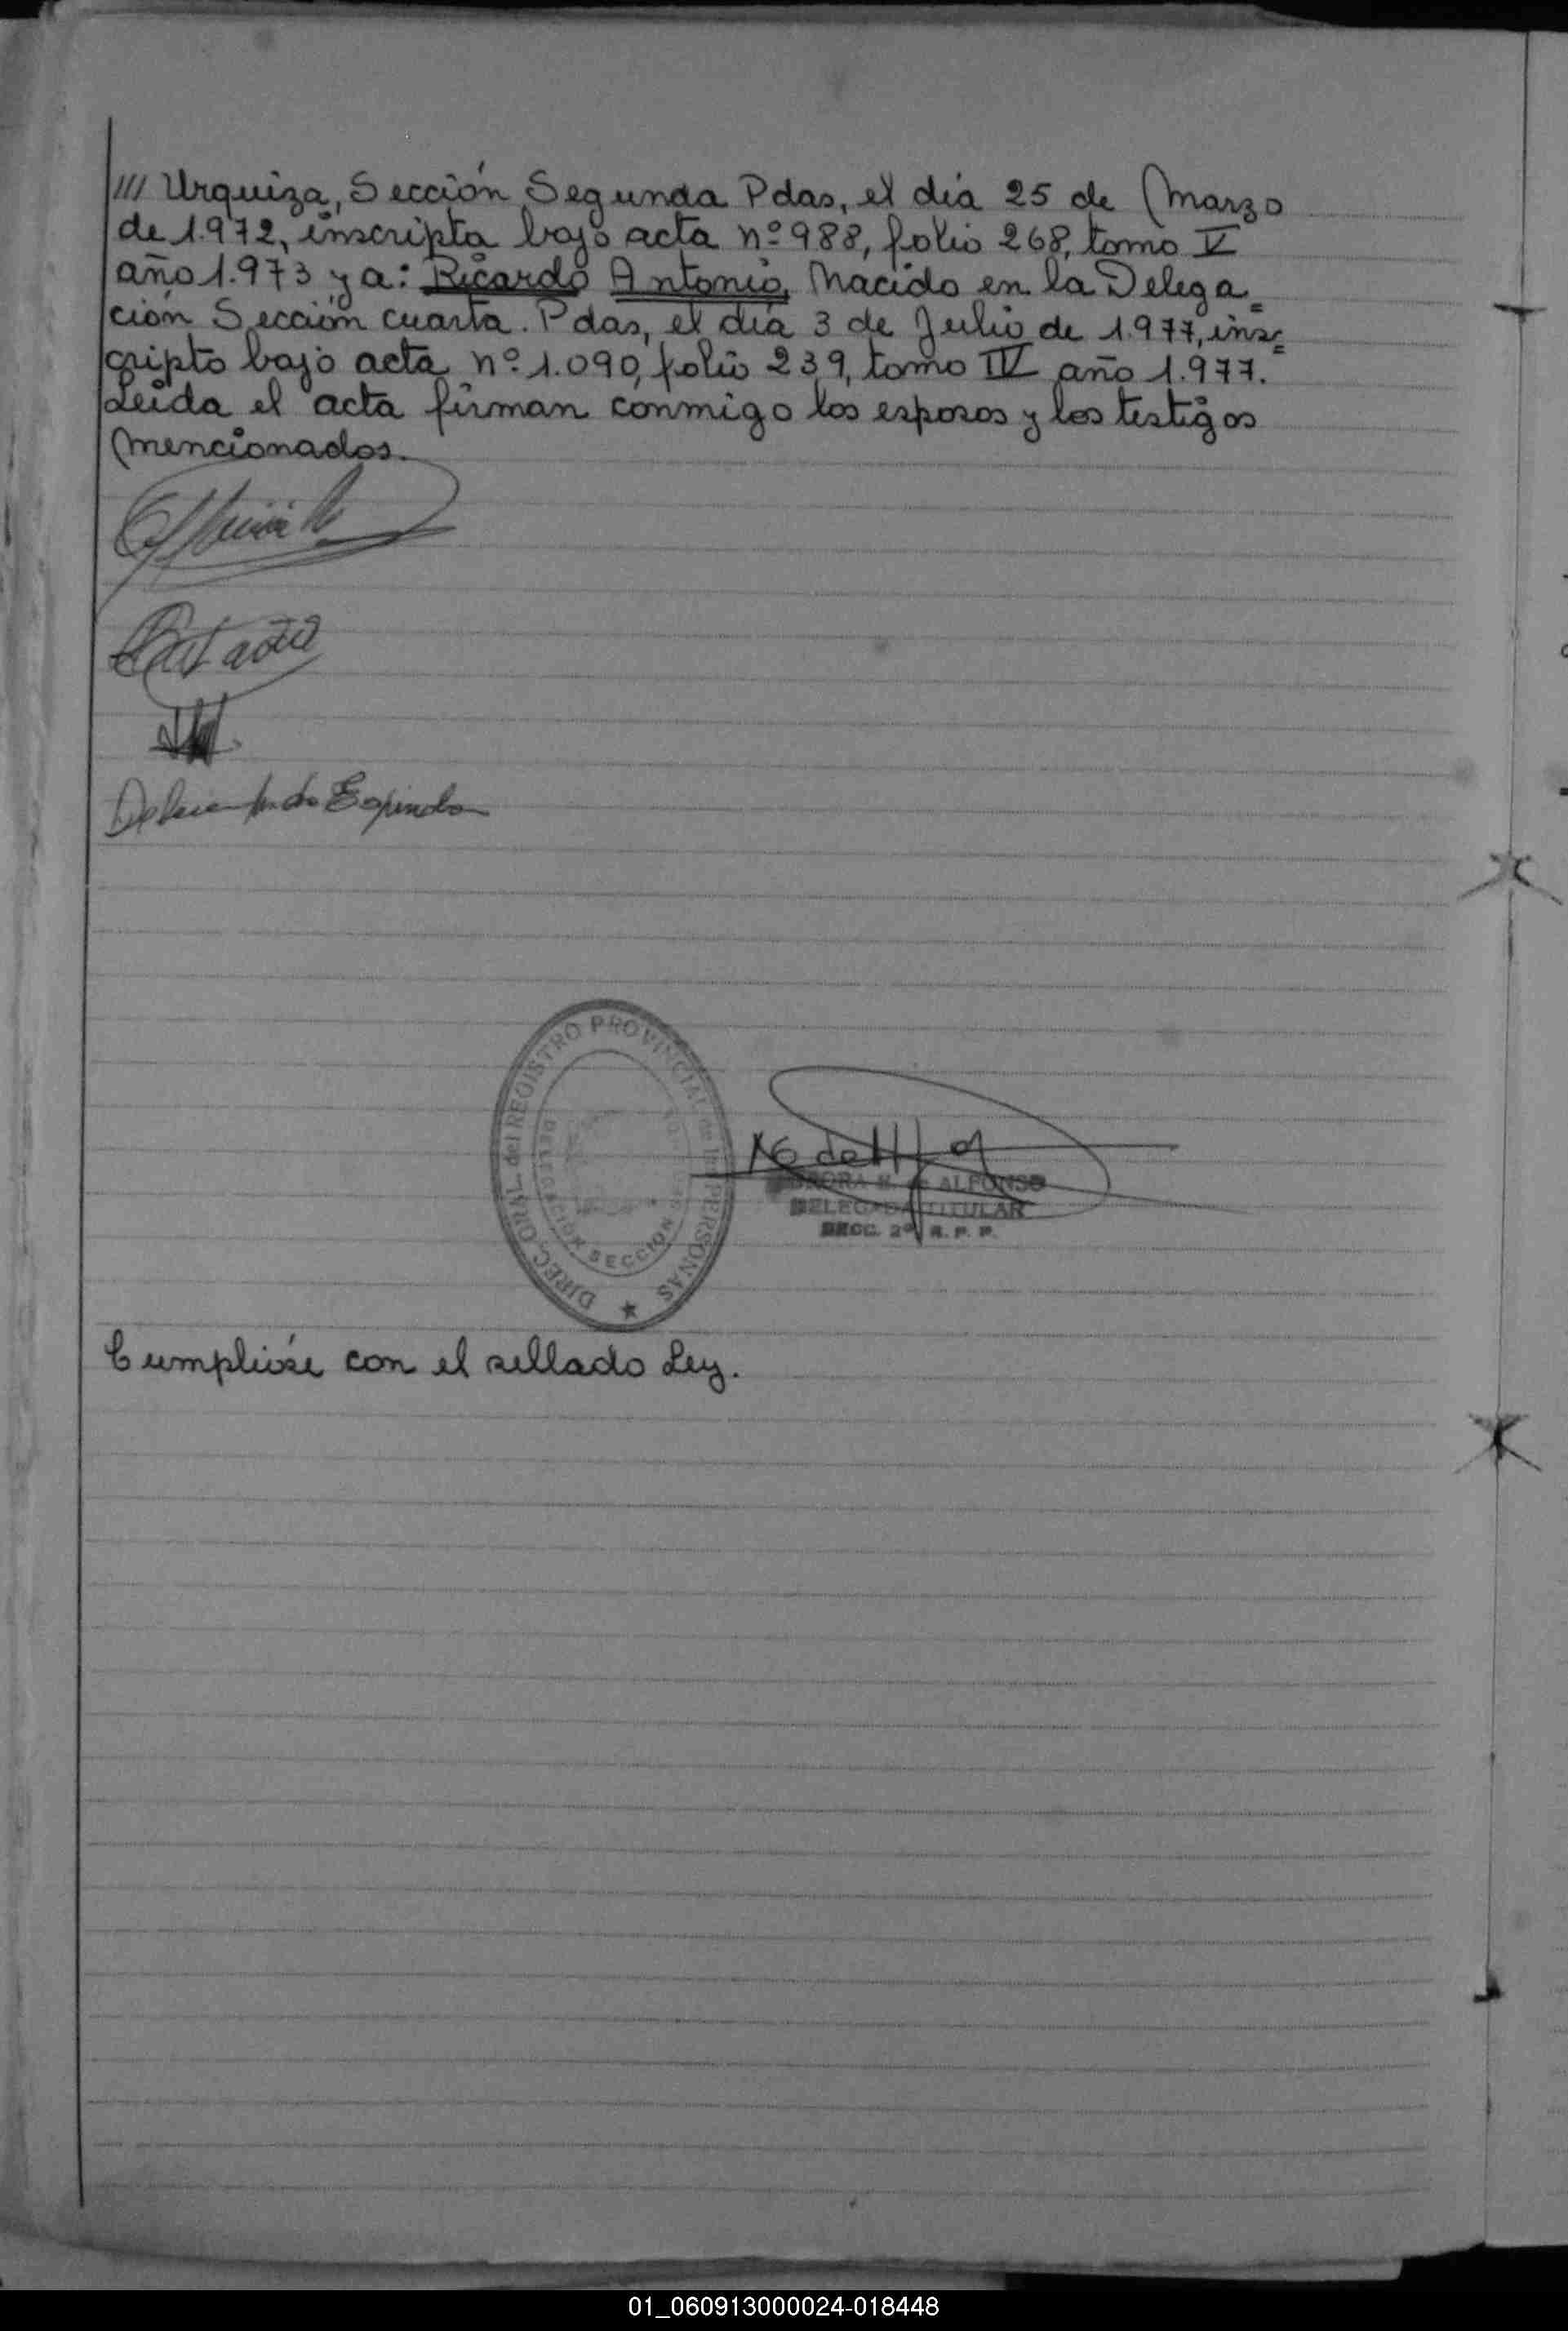 /// Urquiza, Sección Segunda Pdas, el día 25 de Marzo
de 1.972, inscripta bajo acta nº 988, folio 268, tomo V
año 1.973 y a: Ricardo Antonio, Nacido en la Delega=
ción Sección cuarta. Pdas, el día 3 de Julio de 1.977, ins=
cripto bajo acta nº 1.090, folio 239, tomo IV año 1.977.
Leída el acta firman conmigo los esposos y los testigos
mencionados.
Espindola
DIREC. GRAL. del REGISTRO PROVINCIAL de las PERSONAS
DELEGACIÓN SECCION
de ALFONSO
DELEGADA TITULAR
SECC. 2ª R. P. P.
Cumplióse con el sellado Ley.
01_060913000024-018448